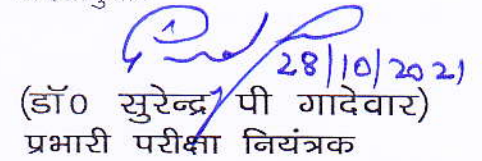 28/10/2021
(डॉ0 सुरेन्द्र पी गादेवार)
प्रभारी परीक्षा नियंत्रक